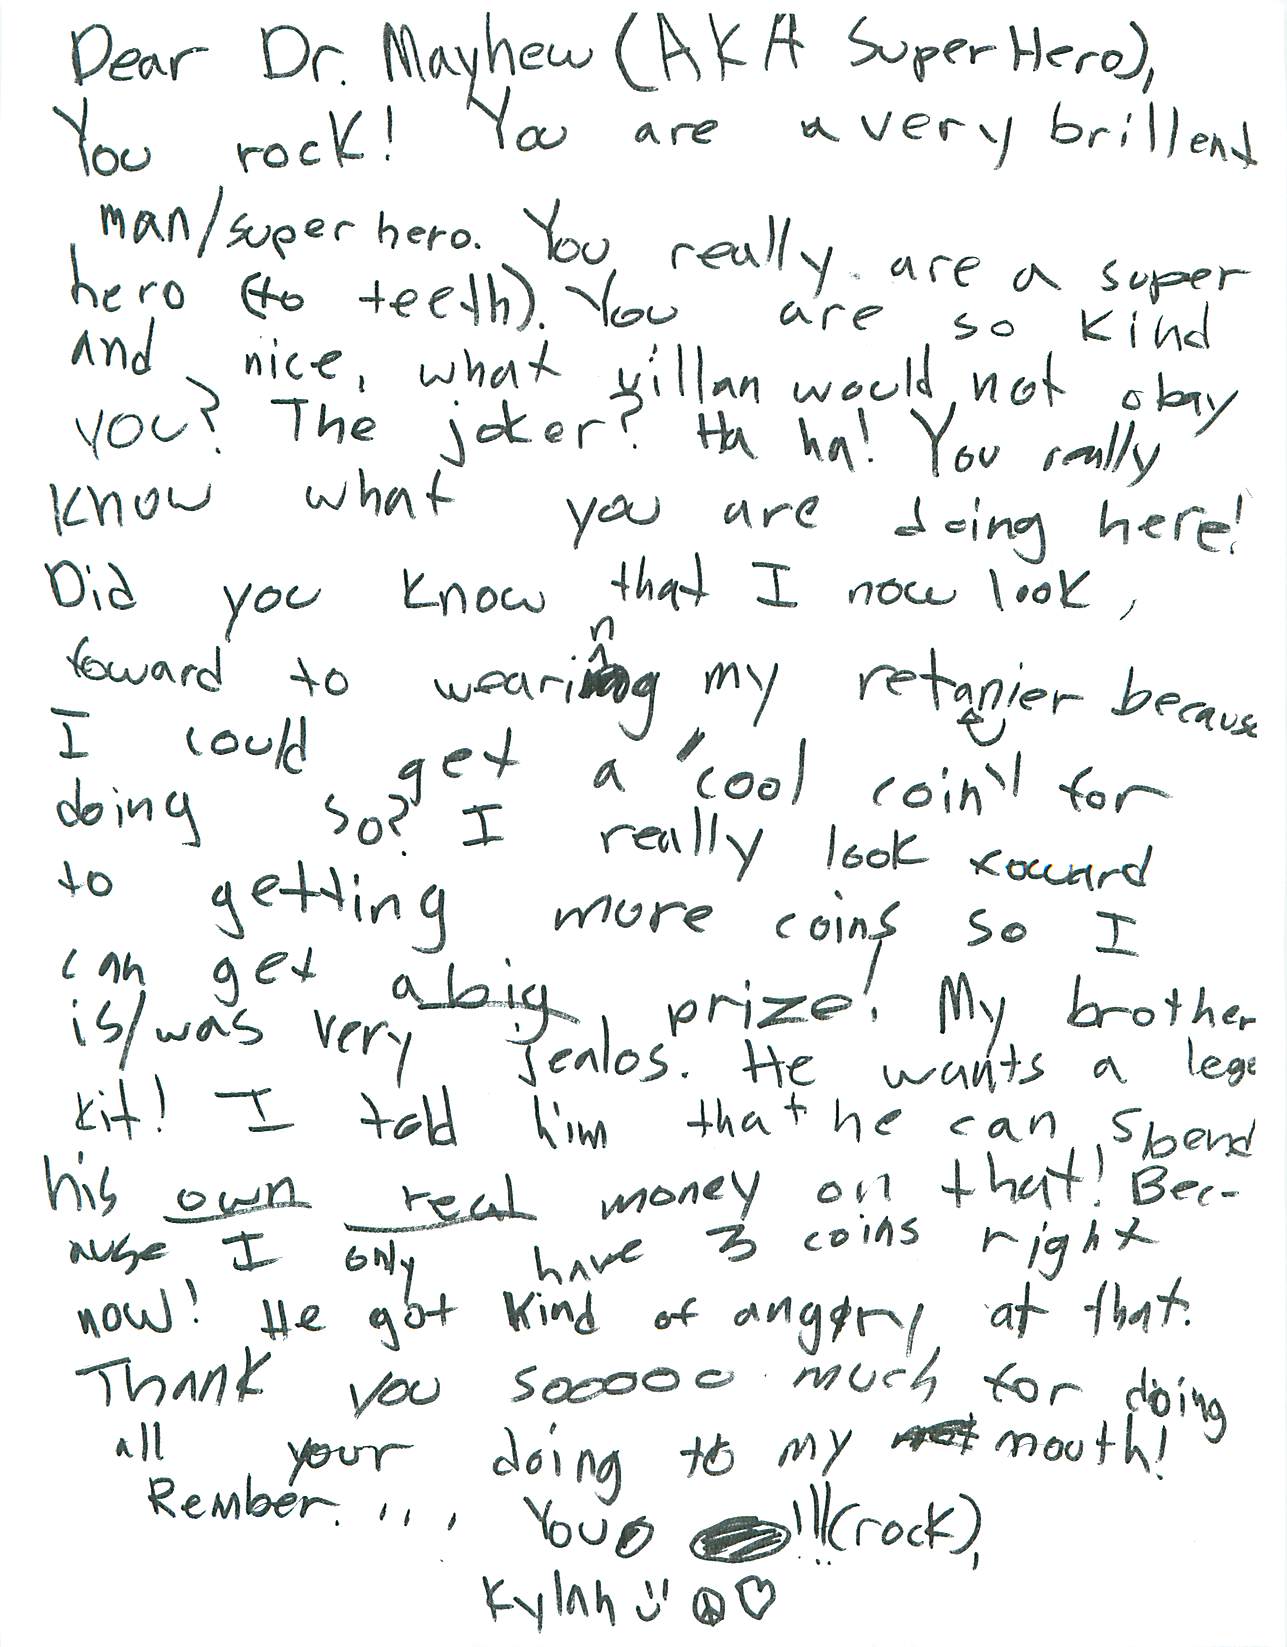 Dear Dr. Mayhew (AKA Super Hero),
You rock! You are a very brillent
man/super hero. You really are a super
hero (to teeth). You are so kind
and nice, what villan would not obay
you? The joker? Ha ha! You really
know what you are doing here!
Did you know that I now look,
foward to wearing my retanier because
I could get a "cool coin" for
doing so? I really look foward
to getting more coins so I
can get a big prize! My brother
is/was very jealos. He wants a lego
kit! I told him that he can spend
his own real money on that! Bec-
ause I only have 3 coins right
now! He got kind of angry at that.
Thank you sooooo much for doing
all your doing to my mouth!
Rember.... You !!!(rock),
Kylah